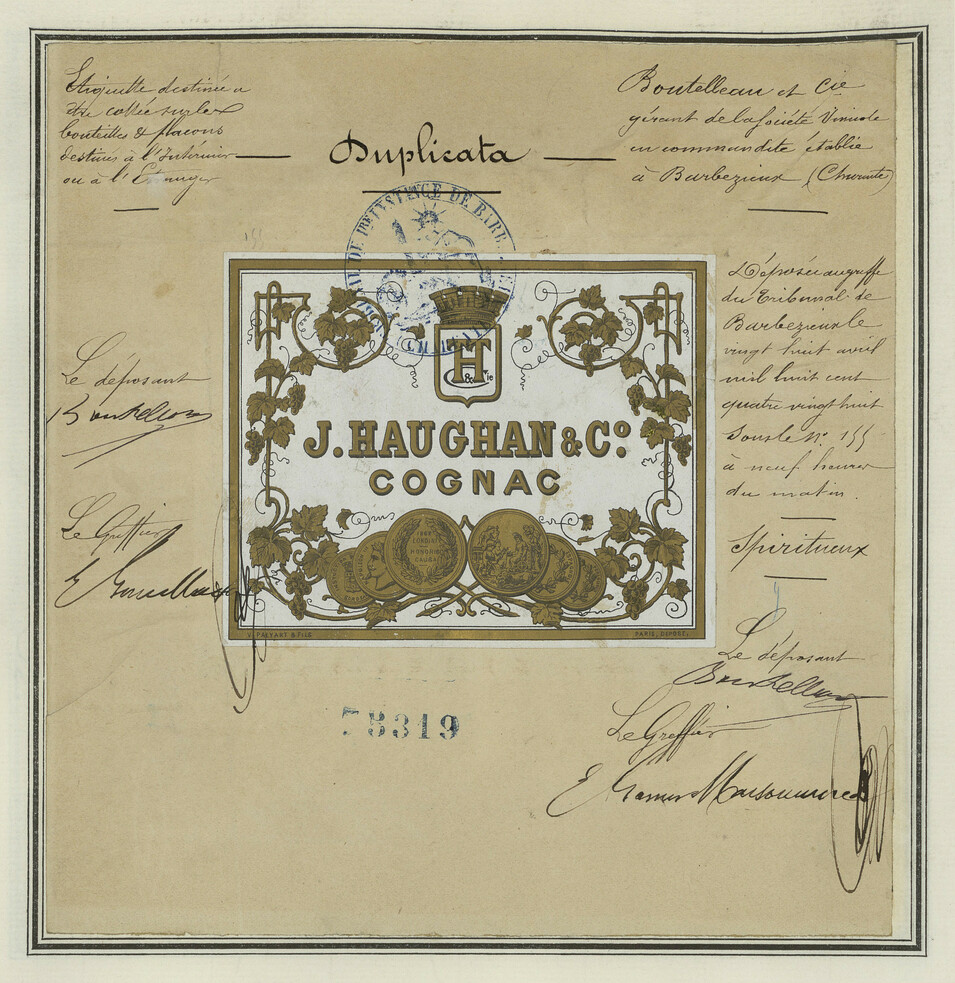 Etiquette destinée a
être collée sur les
bouteilles & flacons
destinés à l'Intérieur
ou à l'Etranger
Duplicata
Boutelleau et Cie
gérant de la Société Vinicole
en commandite établie
à Barbezieux (Charente)
DE 1RE INSTANCE DE BARB
Déposée au greffe
du Tribunal de
Barbezieux le
vingt huit avril
mil huit cent
quatre vingt huit
sous le No 155
à neuf heures
du matin.
Spiritueux
155
Le déposant
Boutelleau
Le Greffier
H
& Cie
J. HAUGHAN & Co.
COGNAC
1862
LONDRES
HONORIS
CAUSA
V. PALYART & FILS
PARIS, DEPOSE.
Le déposant
Boutelleau
Le Greffier
78319